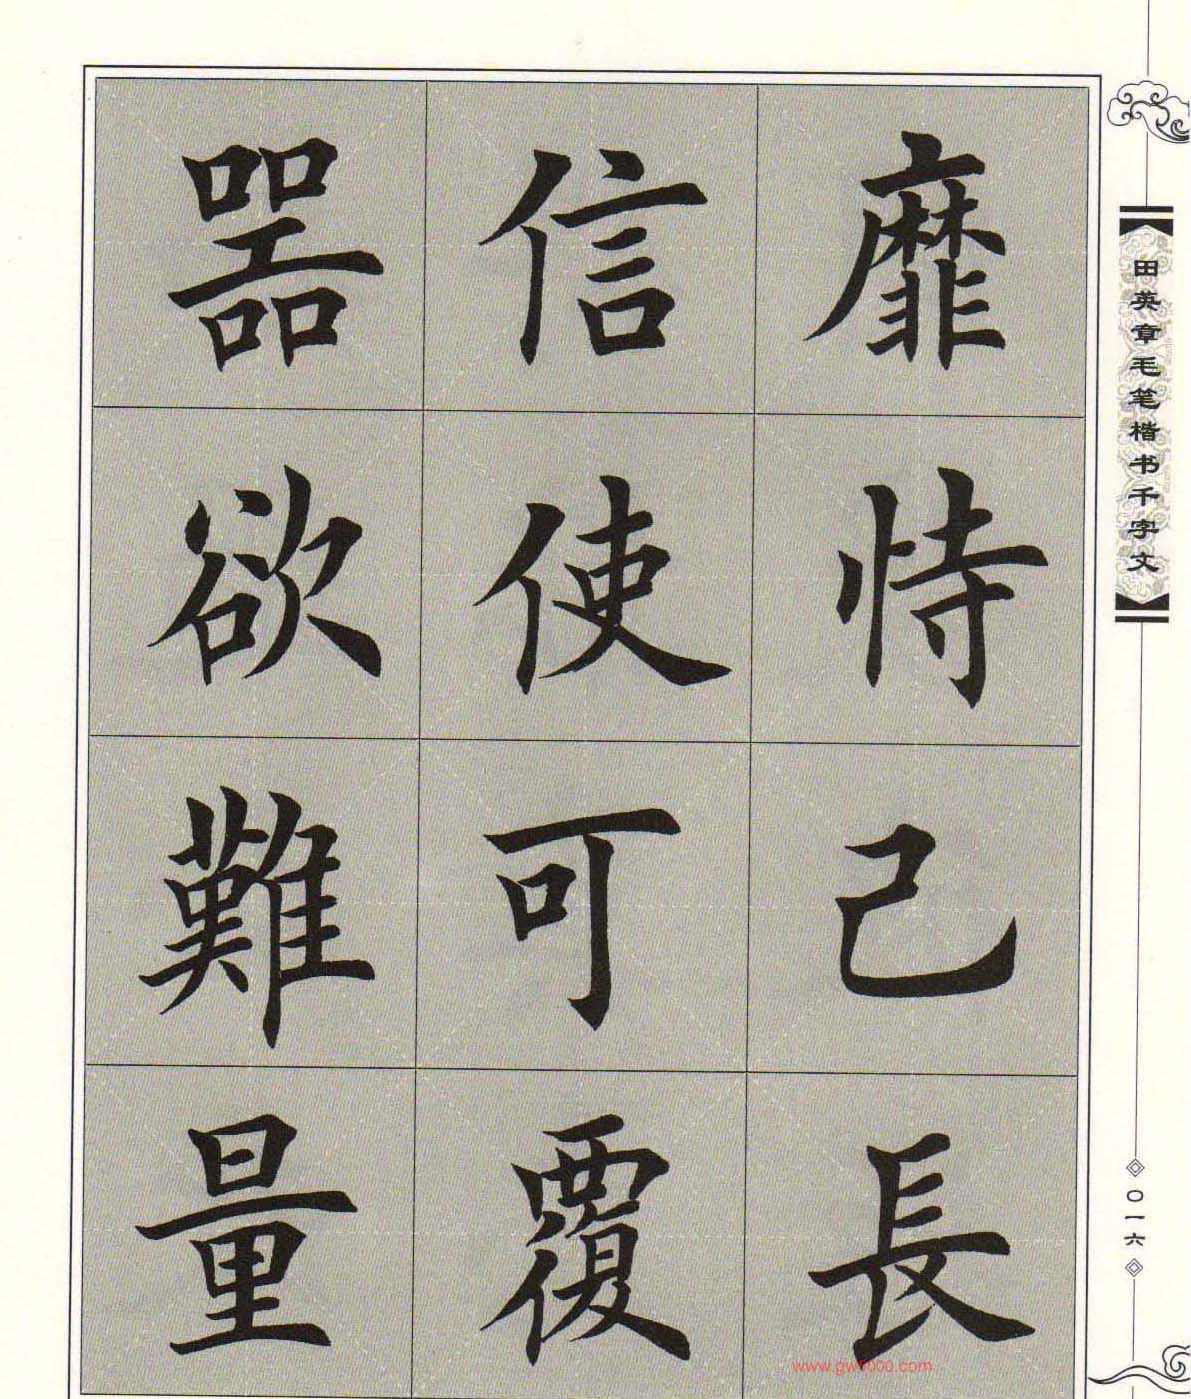 靡恃己長
信使可覆
器欲難量
田英章毛笔楷书千字文
〇一六
www.gw5000.com